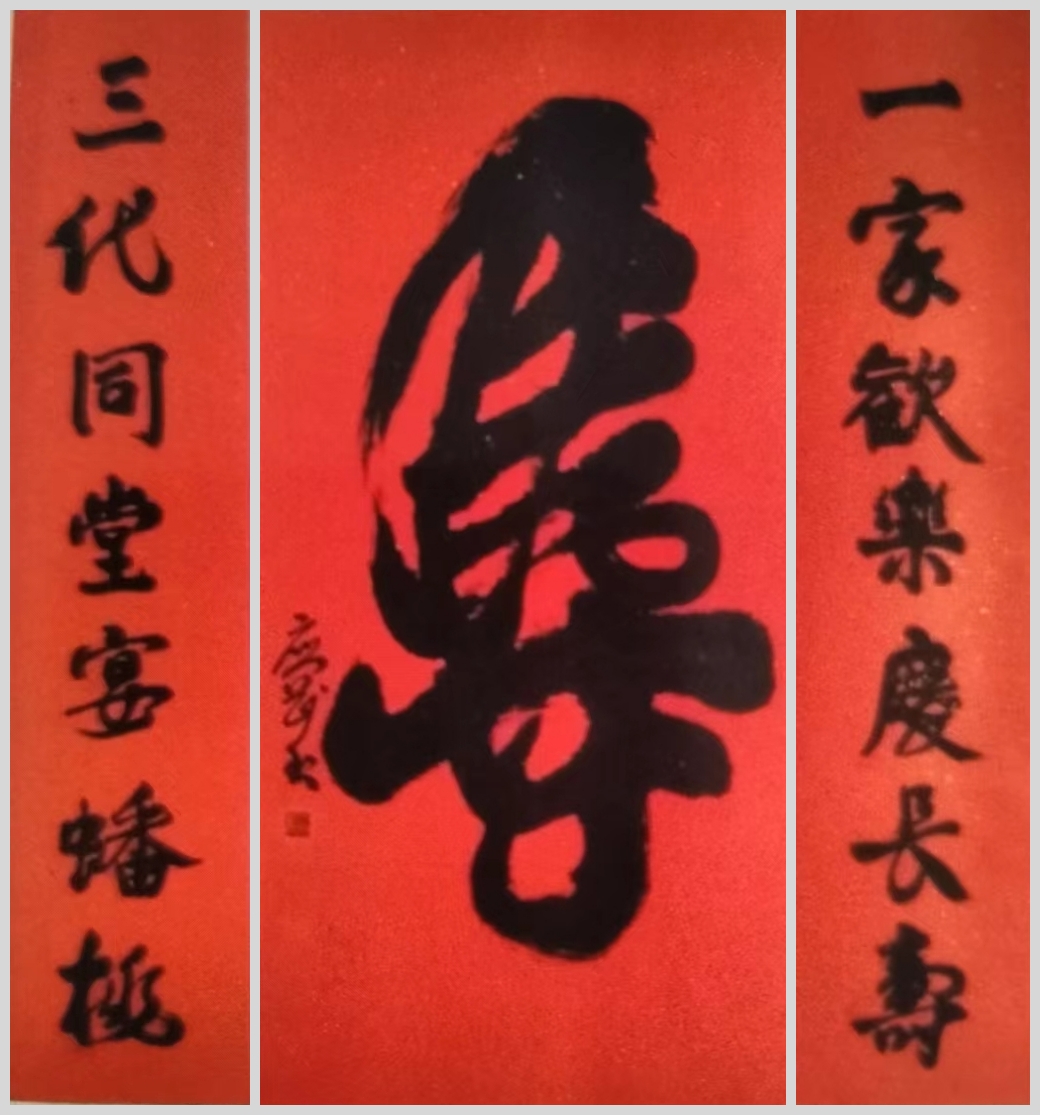 一家歡樂慶長壽
壽
三代同堂宴蟠桃